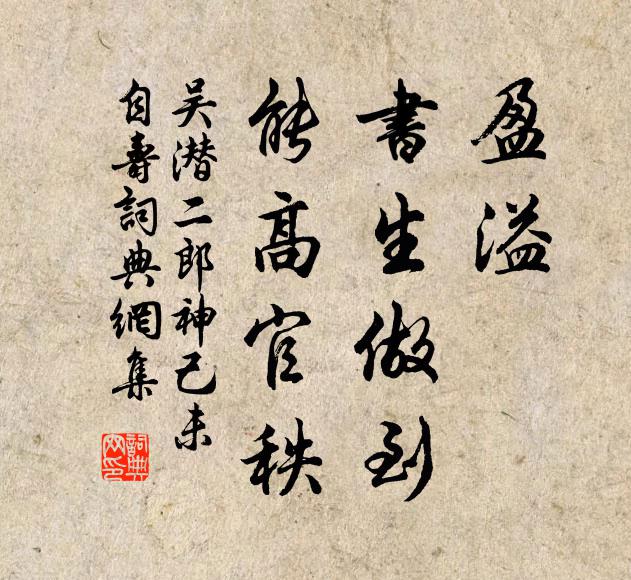 盈溢
書生做到
能高官秩
吴潛二郎神己未
自壽詞典網集
詞典
网印